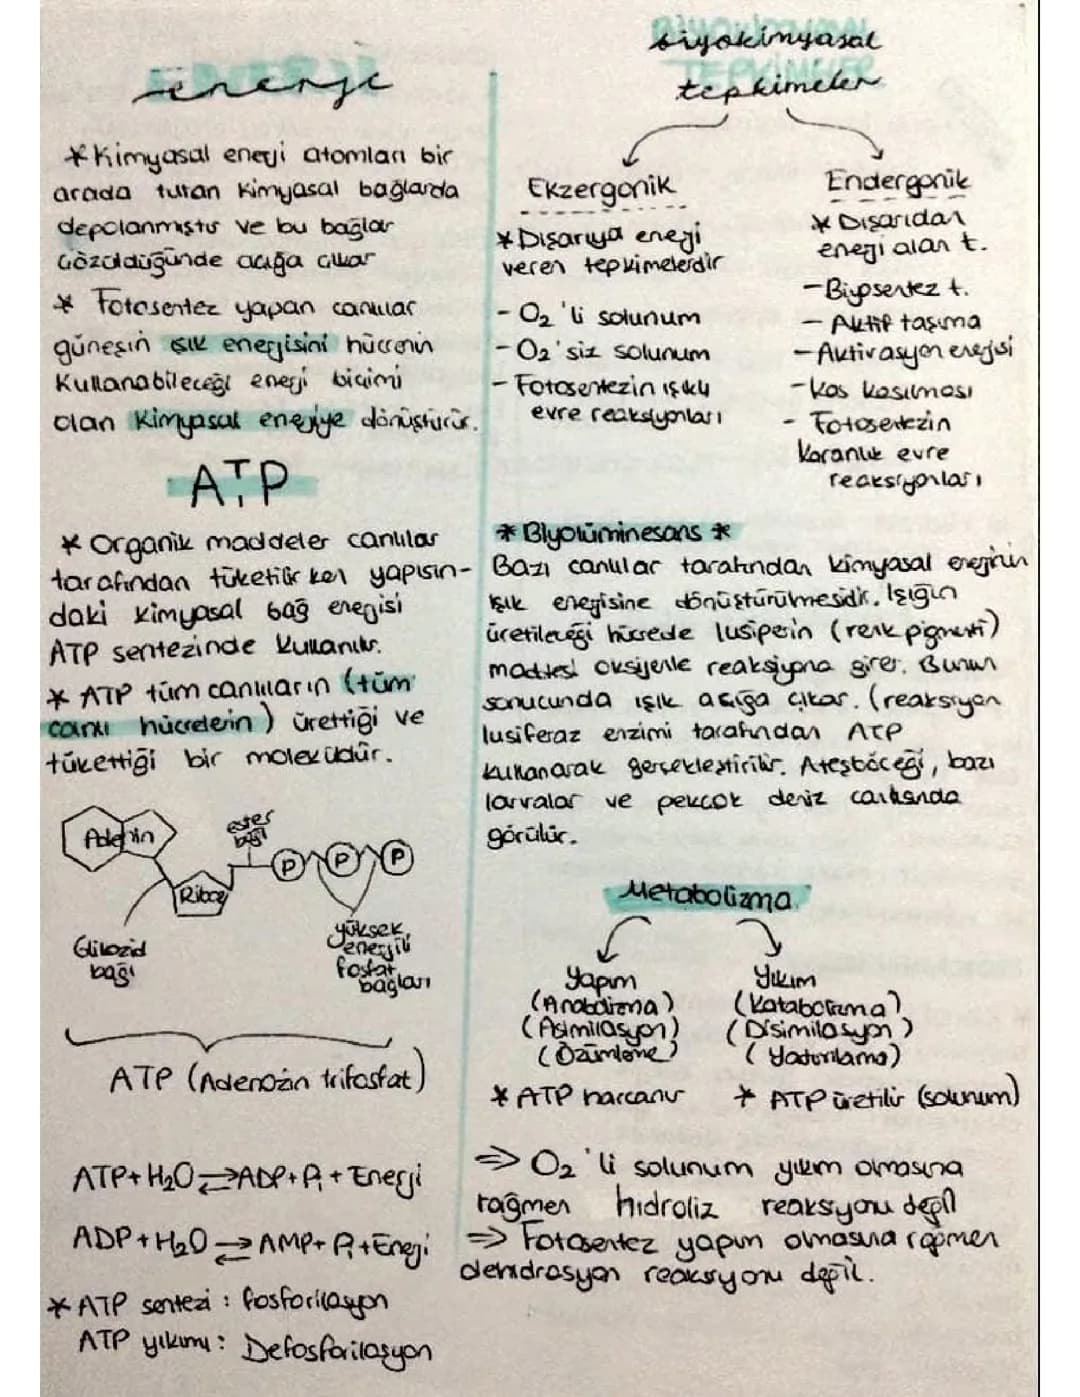 Enerji
*Kimyasal enerji atomları bir
arada tutan kimyasal bağlarda
depolanmıştır ve bu bağlar
çözüldüğünde açığa çıkar
* Fotosentez yapan canlılar
güneşin ışık enerjisini hücrenin
kullanabileceği enerji biçimi
olan kimyasal enerjiye dönüştürür.
ATP
* Organik maddeler canlılar
tarafından tüketilirken yapısın-
daki kimyasal bağ enerjisi
ATP sentezinde kullanılır.
* ATP tüm canlıların (tüm
canlı hücrelerin) ürettiği ve
tükettiği bir moleküldür.
Adenin
ester
bağı
P P P
Riboz
Glikozid
bağı
yüksek
enerjili
fosfat
bağları
ATP (Adenozin trifosfat)
ATP+H₂O⇄ADP+Pi+Enerji
ADP+H₂O⇄AMP+Pi+Enerji
* ATP sentezi : fosforilasyon
ATP yıkımı : Defosforilasyon
BİYOKİMYASAL
TEPKİMELER
biyokimyasal
tepkimeler
Ekzergonik
*Dışarıya enerji
veren tepkimelerdir
- O₂'li solunum
- O₂'siz solunum
- Fotosentezin ışıklı
evre reaksiyonları
Endergonik
* Dışarıdan
enerji alan t.
- Biyosentez t.
- Aktif taşıma
- Aktivasyon enerjisi
- Kas kasılması
- Fotosentezin
Karanlık evre
reaksiyonları
* Biyolüminesans *
Bazı canlılar tarafından kimyasal enerjinin
ışık enerjisine dönüştürülmesidir. Işığın
üretileceği hücrede lusiperin (renk pigmenti)
maddesi oksijenle reaksiyona girer. Bunun
sonucunda ışık açığa çıkar. (reaksiyon
lusiferaz enzimi tarafından ATP
kullanarak gerçekleştirilir. Ateşböceği, bazı
larvalar ve pekçok deniz canlısında
görülür.
Metabolizma
Yapım
(Anabolizma)
(Asimilasyon)
(Özümleme)
* ATP harcanır
Yıkım
(Katabolizma)
(Disimilasyon)
(Yadımlama)
* ATP üretilir (solunum)
⇒ O₂'li solunum yıkım olmasına
rağmen hidroliz reaksiyonu değil
⇒ Fotosentez yapım olmasına rağmen
dehidrasyon reaksiyonu değil.